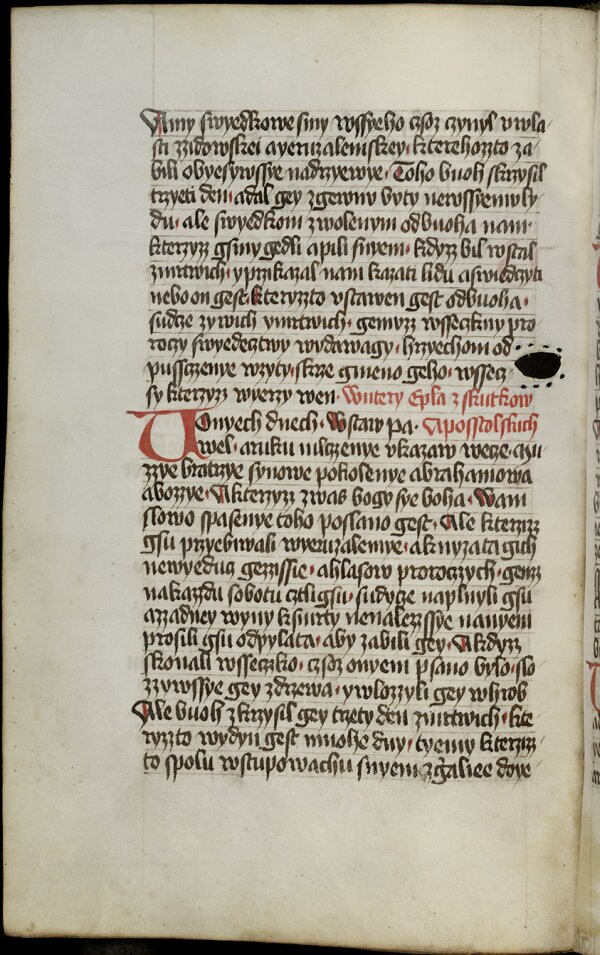 Amy swyedkowe smy wssyeho czsoz czynyl vwla-
sti zzidowskei ayeruzalemskey· kterehozto za-
bili obyesywsse nadrzyewye· Toho buoh skrzysil
trzyeti den· adal gey zgewnu byty newssyemu ly-
du· ale swyedkom zwolenym odbuoha nam·
kterzyz gsmy gedli apili snyem· kdyz bil wstal
zmrtwich· yprzikazal nam kazati lidu aswiedczyti
nebo on gest· kteryzto vstawen gest odbuoha·
sudze zywich ymrtwich· gemuzz wsseczkny pro-
roczy swyedecztwy wydawagy· hrzyechom od-
pussczenye wzyty· skrze gmeno geho· wssecz-
sy kterzyz wyerzy wen· Wutery Epla z skutkow
Onyech dnech· Wstaw pa- Aposstolskich
wel· aruku mlczenye vkazaw wecze· mu-
zzye bratrzye synowe pokolenye abrahamowa
abozzye· Akterzyz zwas bogy sye boha· Wam
slowo spasenye toho poslano gest· Ale kterzizz
gsu przyebiwali wyeruzalemye· aknyzata gich
newyeduc gezzissie· ahlasow proroczych· genz
nakazdu sobotu cztli gsu· sudycze naplnyli gsu
azzadney wyny ksmrty nenalezssye nanyem
prosili gsu odpylata· aby zabili gey· Akdyz
skonali wsseczko· czsoz onyem psano bylo· slo-
zzywssye gey zdrzewa· ywlozzyli gey whrob
Ale buoh zkrzysil gey trzety den zmrtwich· kte-
ryzto wydyn gest mnohe dny· tyemy kterziz-
to spolu wstupowachu snyem zgalilee doye-